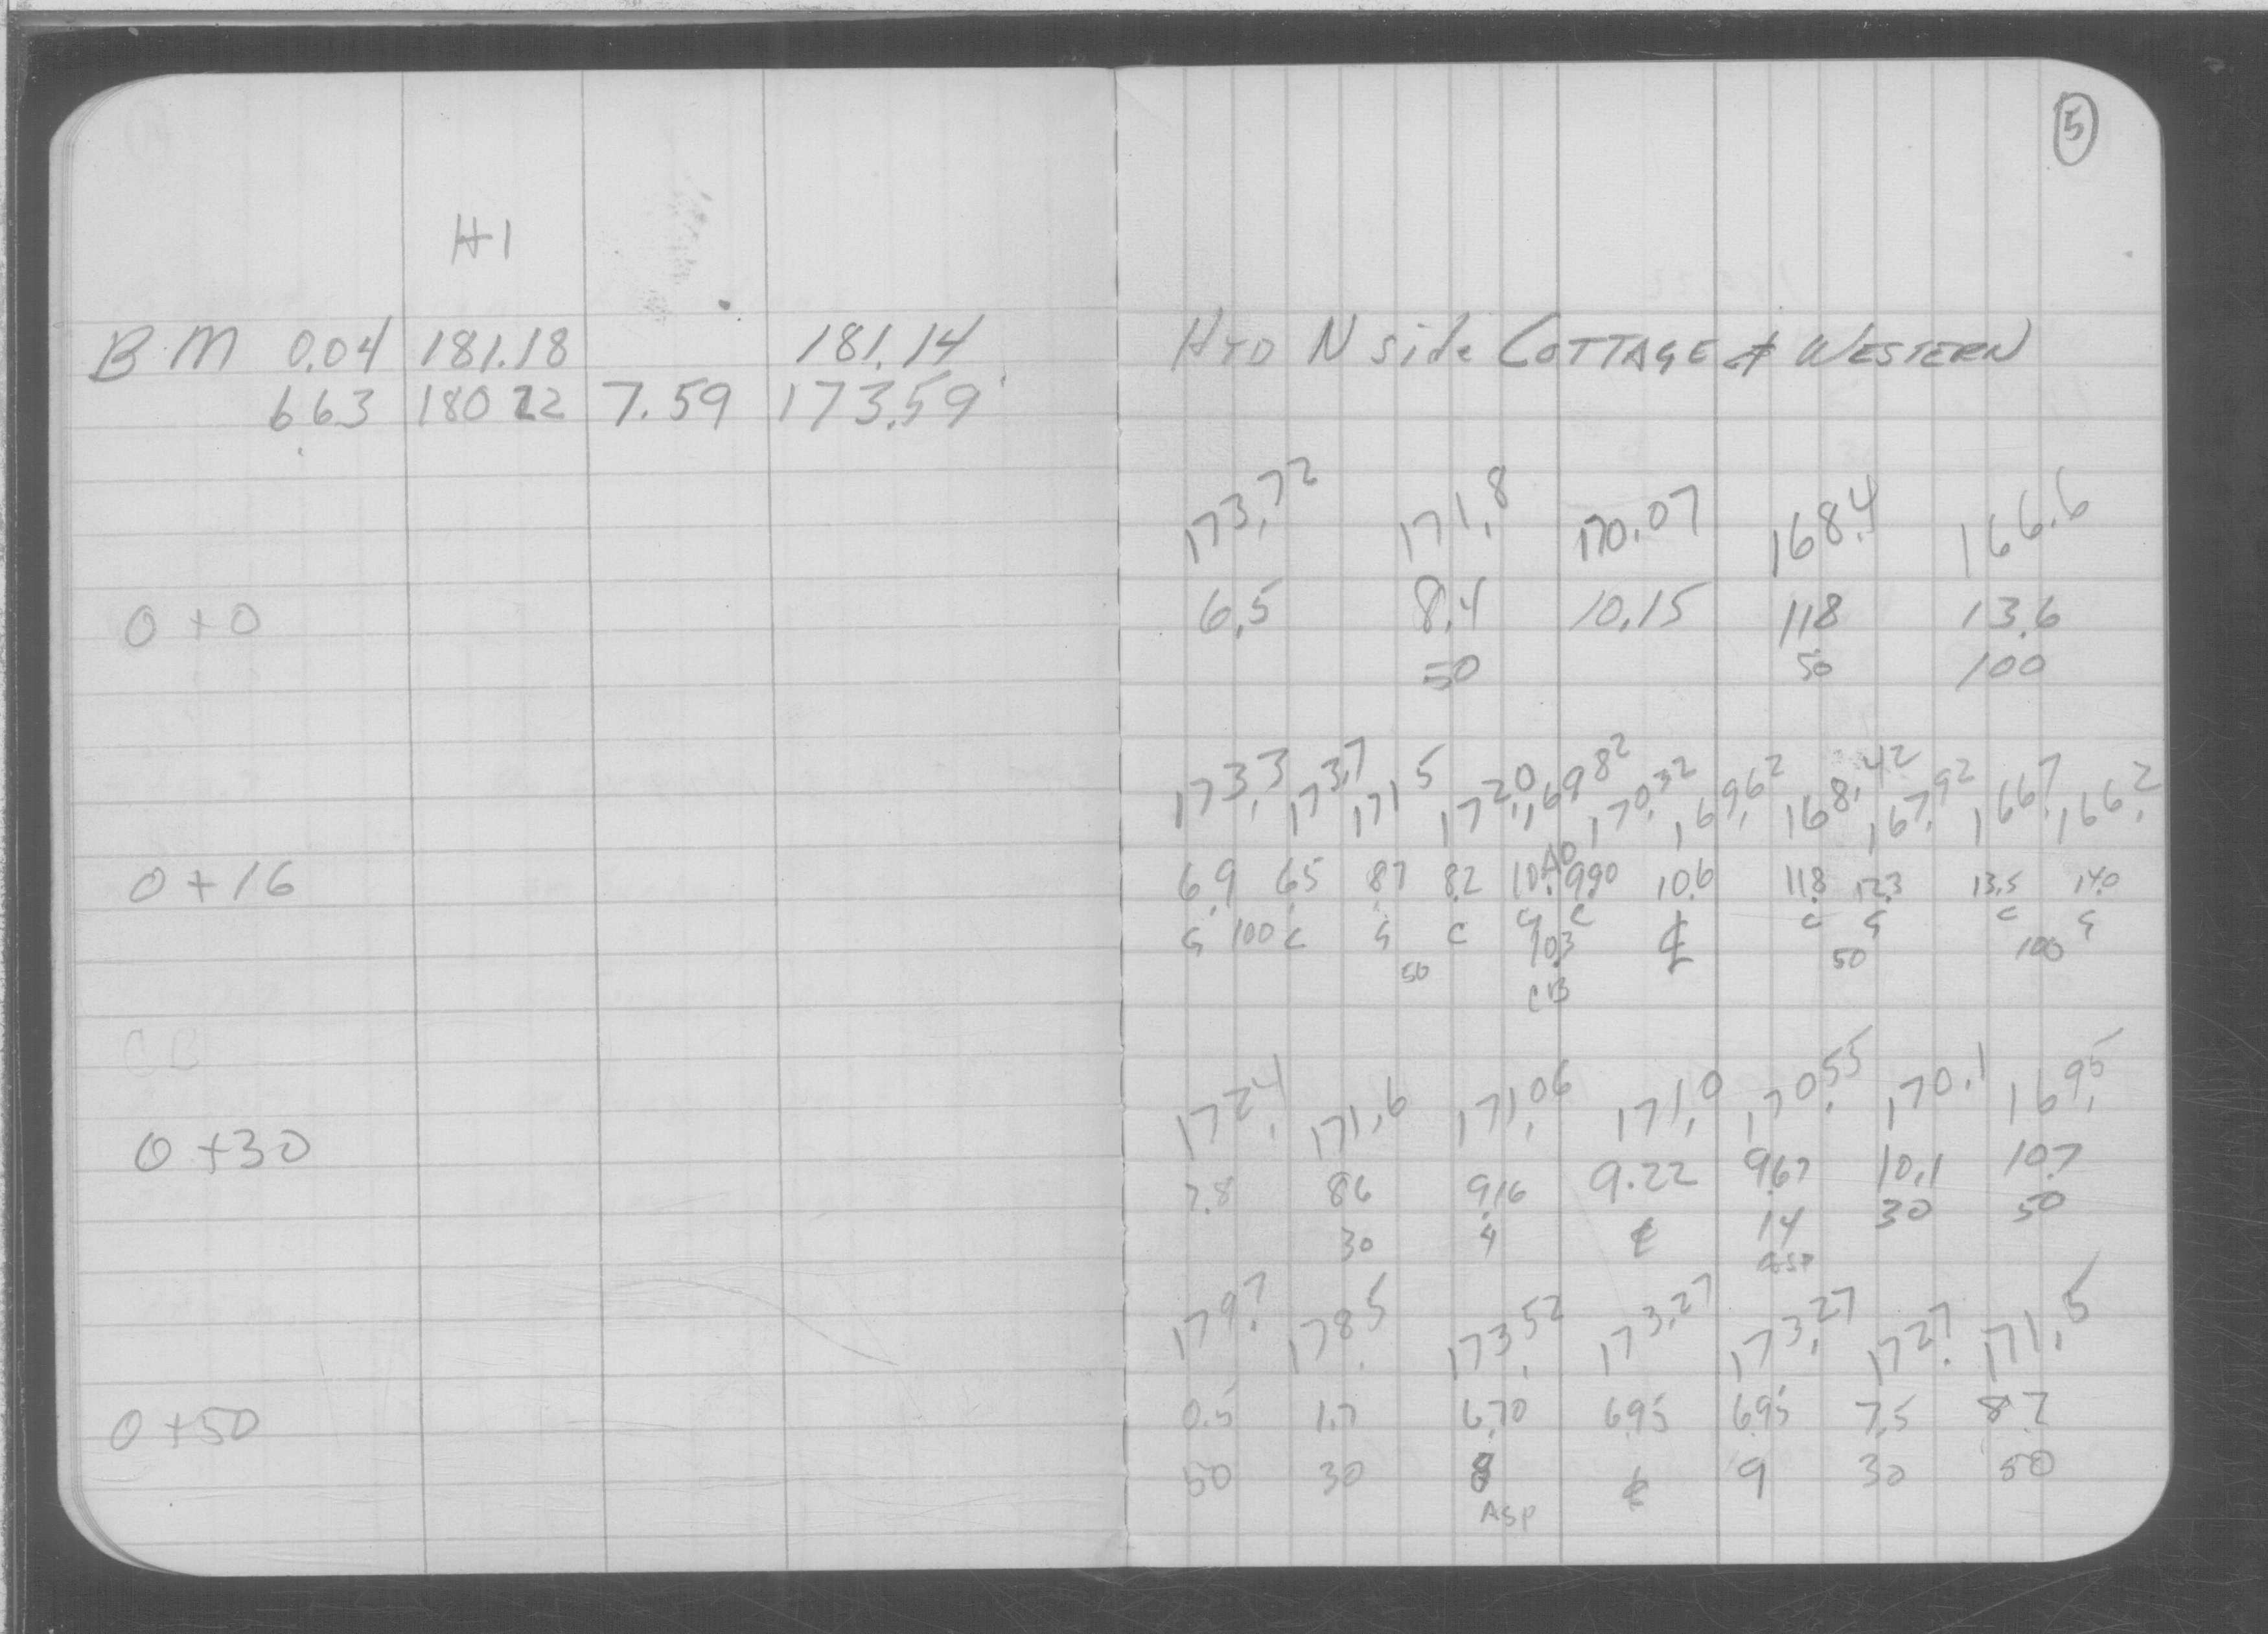 5
HI
BM 0.04 181.18 181.14 HYD N side COTTAGE & WESTERN
6.63 180.22 7.59 173.59
173.72 171.8 170.07 168.4 166.6
0+0 6.5 8.4 10.15 11.8 13.6
50 50 100
173.3 173.7 171.5 172.0 169.82 170.32 169.62 168.42 167.92 166.7 166.2
0+16 6.9 6.5 8.7 8.2 10.40 9.90 10.6 11.8 12.3 13.5 14.0
G C G C G C ℄ C G C G
100 50 10.3 50 100
CB
CB
172.4 171.6 171.06 171.0 170.55 170.1 169.5
0+30 7.8 8.6 9.16 9.22 9.67 10.1 10.7
30 4 ℄ 14 30 50
ASP
179.7 178.5 173.52 173.27 173.27 172.7 171.5
0+50 0.5 1.7 6.70 6.95 6.95 7.5 8.7
50 30 8 ℄ 9 30 50
ASP